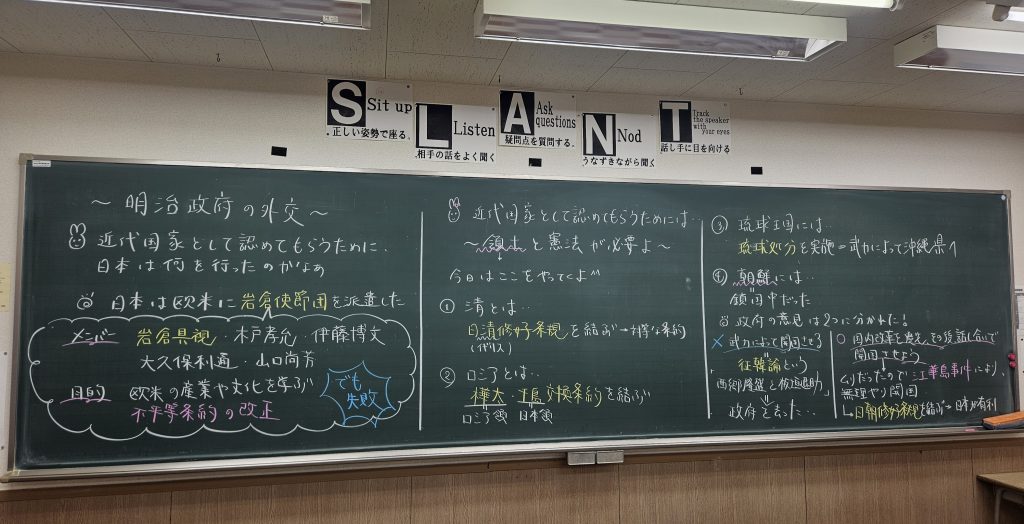 S Sit up
正しい姿勢で座る。
L Listen
相手の話をよく聞く
A Ask questions
疑問点を質問する。
N Nod
うなずきながら聞く
T Track the speaker with your eyes
話し手に目を向ける
～明治政府の外交～
近代国家として認めてもらうために、
日本は何を行ったのかなぁ
日本は欧米に岩倉使節団を派遣した
メンバー 岩倉具視・木戸孝允・伊藤博文
大久保利通・山口尚芳
目的 欧米の産業や文化を学ぶ
不平等条約の改正
でも
失敗
近代国家として認めてもらうためには‥
～領土と憲法が必要よ～
今日はここをやってくよ
① 清とは‥
日清修好条規を結ぶ→対等な条約
② ロシアとは‥
樺太・千島交換条約を結ぶ
ロシア領 日本領
③ 琉球王国には‥
琉球処分を実施＝武力によって沖縄県へ
④ 朝鮮には‥
鎖国中だった
政府の意見は2つに分かれた！
× 武力によって開国させる
征韓論という
西郷隆盛と板垣退助
政府を去った‥
○ 国内改革を優先、その後話し合いで
開国させよう
ムリだったので江華島事件により、
無理やり開国
日朝修好条規を結ぶ→日本が有利